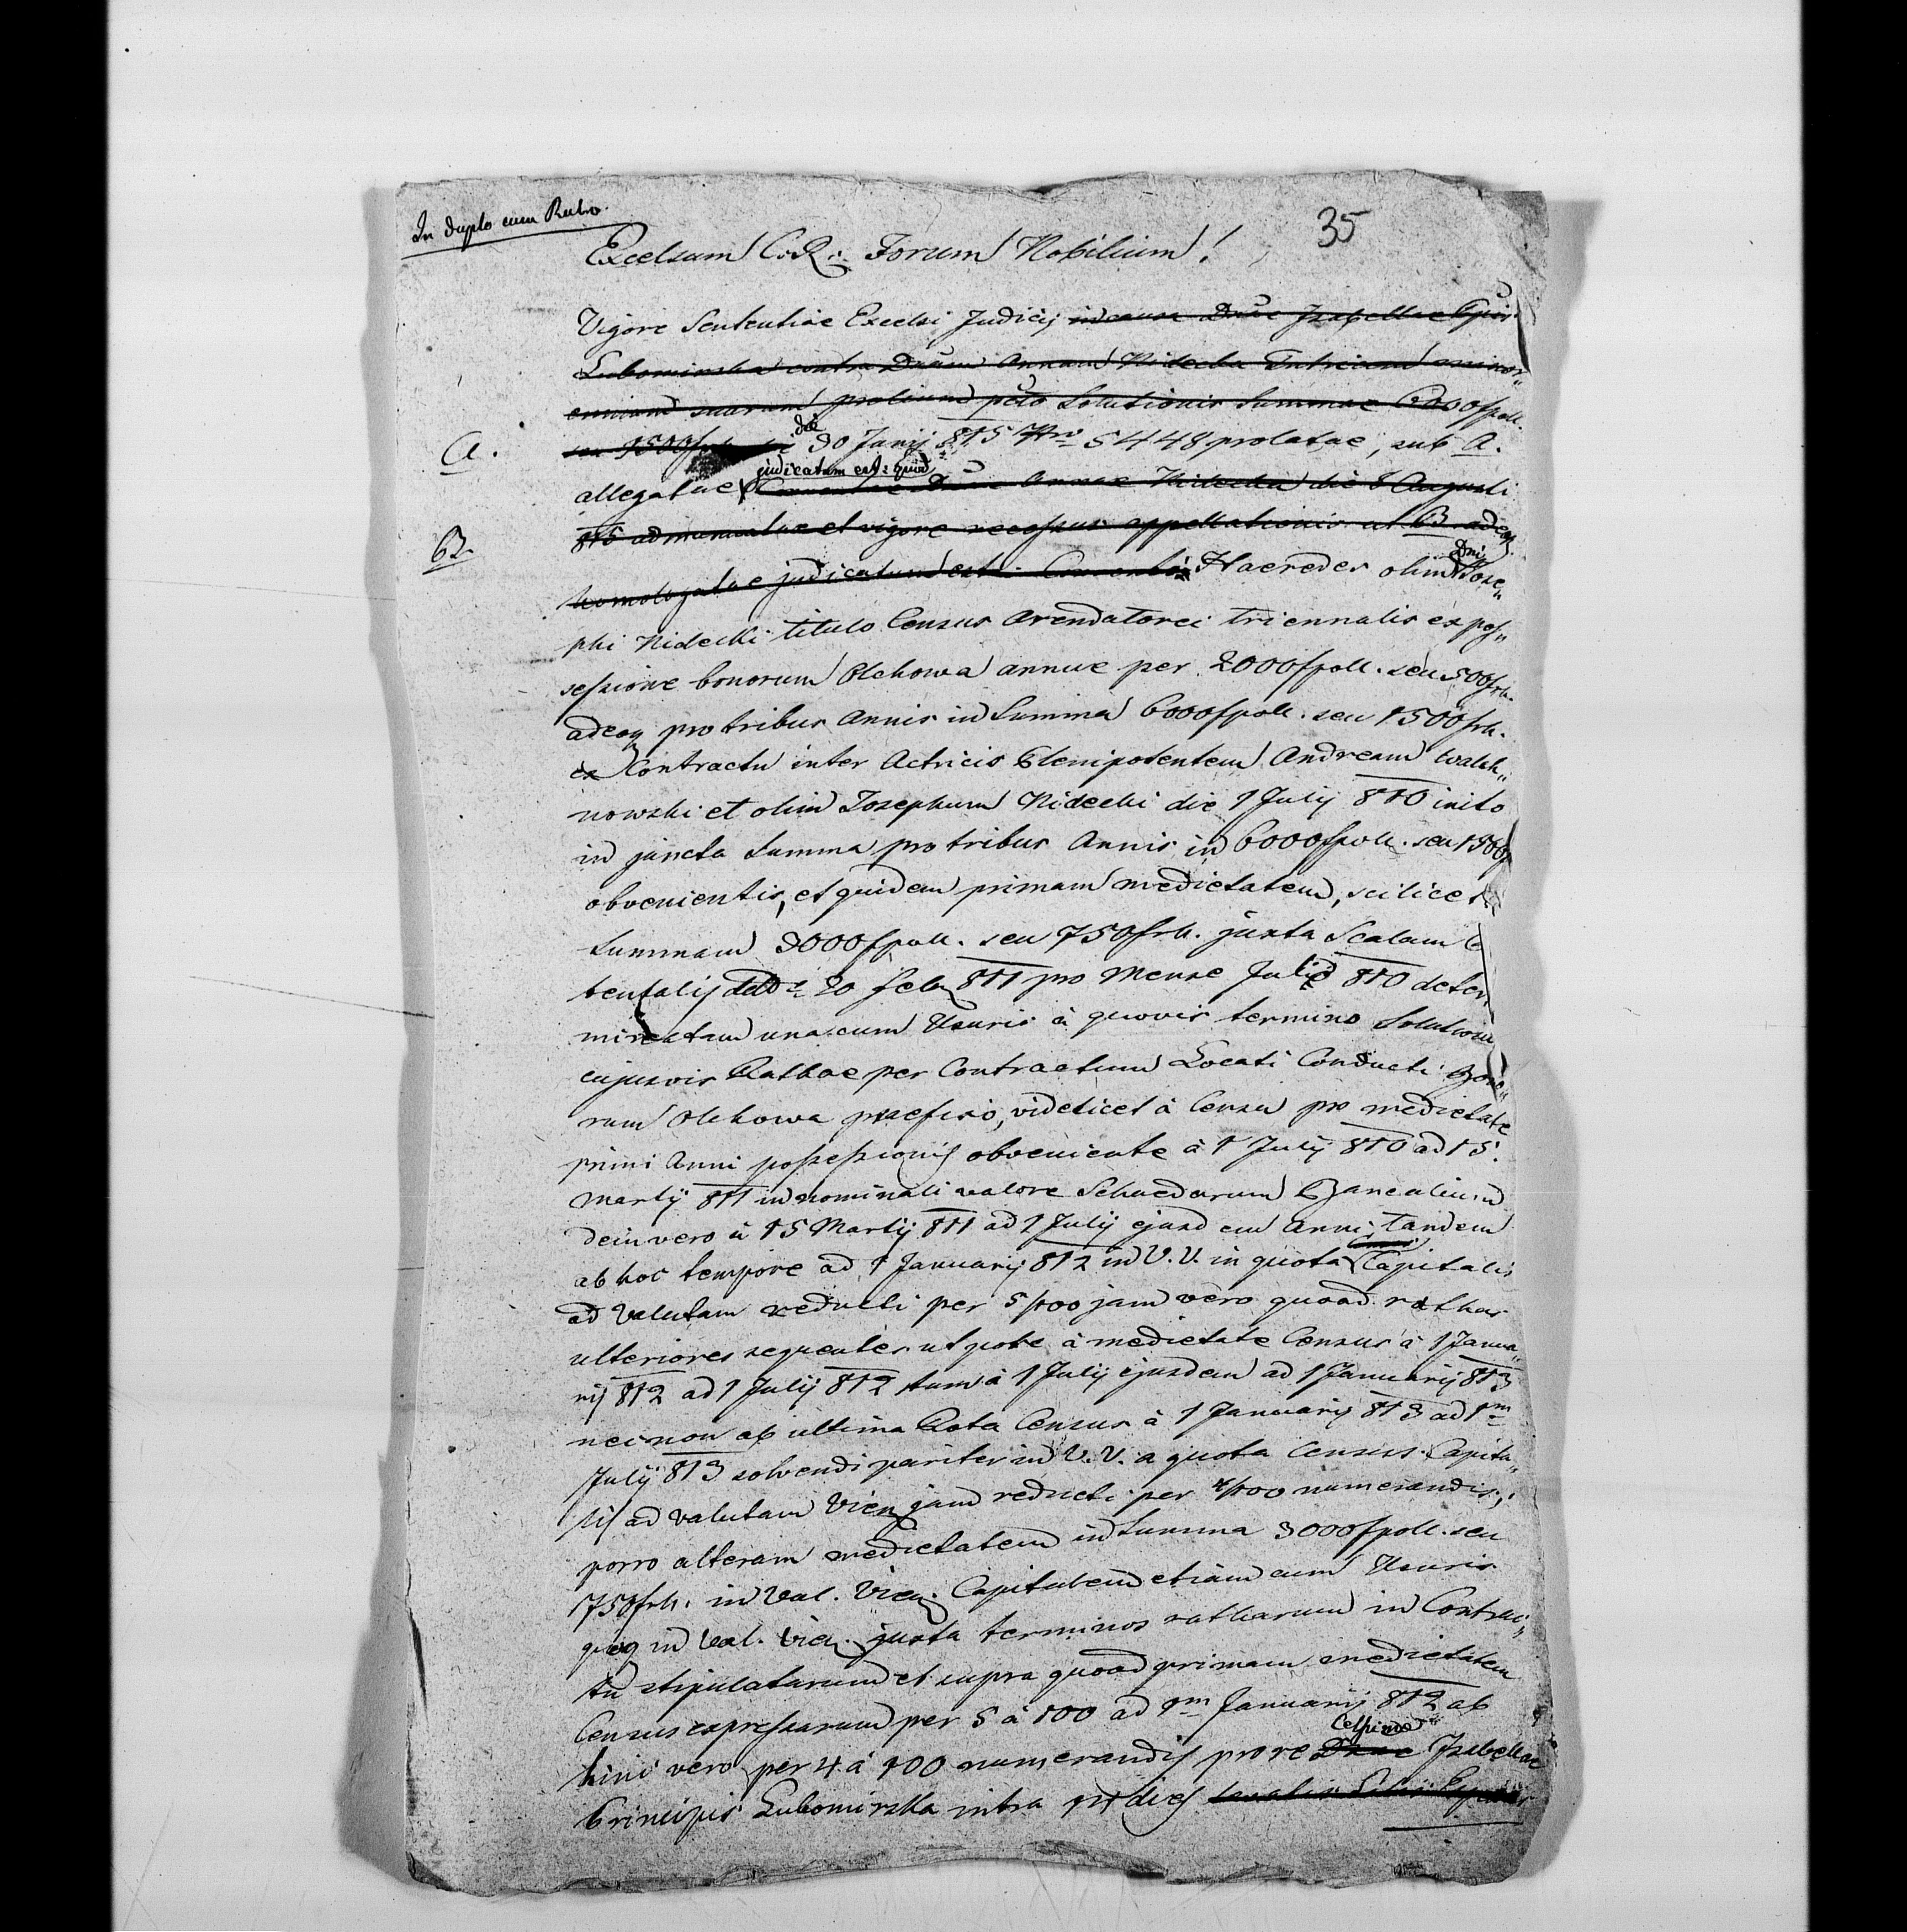 In duplo cum Rubro.
35
Excelsum C. R. Forum Nobilium!
Vigore Sententiae Excelsi Judicij in causa Dnae Isabellae Ppis
Lubomirska contra Dnam Annam Nidecka Tutricem minor„
ennium suarum prolium pcto Solutionis Summae 6000fpoll.
A.
seu 1500frh. dei 30 Junij 815 Nro 5448 prolatae, sub A.
judicatum est: quod
allegatae Dnae Annae Nidecka die 8 Augusti
B.
815 et vigore recessus appellationis ut B. adeoq
homologatae judicatum est. Haeredes olim Dni Jose„
phi Nidecki titulo Census Arendatorei triennalis ex pos„
sessione bonorum Olchowa annue per 2000fpoll. seu 500frh.
adeoq pro tribus Annis in Summa 6000fpoll. seu 1500frh.
ex Contractu inter Actricis Plenipotentem Andream Walch„
nowski et olim Josephum Nidecki die 1 Julij 810 inito
in juncta Summa pro tribus Annis in 6000fpoll. seu 1500f
obvenientis, et quidem primam medietatem, scilicet
Summam 3000fpoll. seu 750frh. juxta Scalam
ddo 20 feb 811 pro Mense Julio 810 deter„
minatam una cum Usuris à quovis termino Solutioni
cujusvis Rathae per Contractum Locati Conducti Bono„
rum Olchowa praefixo, videlicet à Censu pro medietate
primi Anni possessionis obveniente à 1 Julij 810 ad 15.
Martij 811 in nominali valore Schedarum Bancalium
dein vero à 15 Martij 811 ad 1 Julij ejusdem Anni, tandem
ab hoc tempore ad 1 Januarij 812 in V. V. in quota Capitalis
ad Valutam reducti per 5/100 jam vero quoad rathas
ulteriores sequentes utpote à medietate Census à 1 Janua„
rij 812 ad 1 Julij 812 tum à 1 Julij ejusdem ad 1 Januarij 813
necnon ab ultima Rata Census à 1 Januarij 813 ad 1m
Julij 813 solvendi pariter in V. V. a quota Census Capita„
lis ad valutam Vien jam reducti per 4/100 numerandis,
porro alteram medietatem in Summa 3000fpoll. seu
750frh. in Val. Vien. Capitalem etiam cum Usuris
in Val. Vien. juxta terminos ratharum in Contrac„
tu stipulatarum et supra quoad primam medietatem
Census expressarum per 5 à 100 ad 1m Januarij 812 ab
Celsinae
hinc vero per 4 à 100 numerandis pro re Dnae Isabellae
Principis Lubomirska intra 14 dies